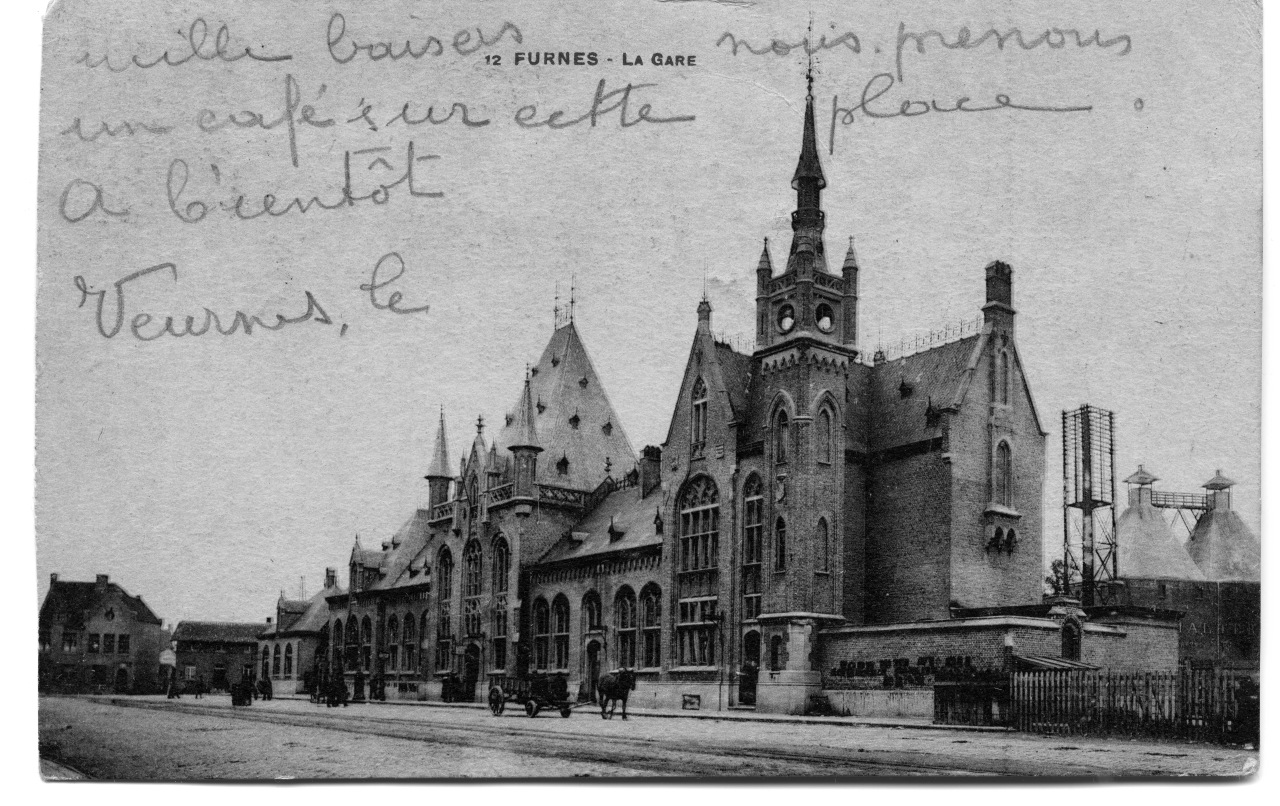 mille baisers nous prenons
12 FURNES - LA GARE
un café sur cette place.
A bientôt
Veurnes, le